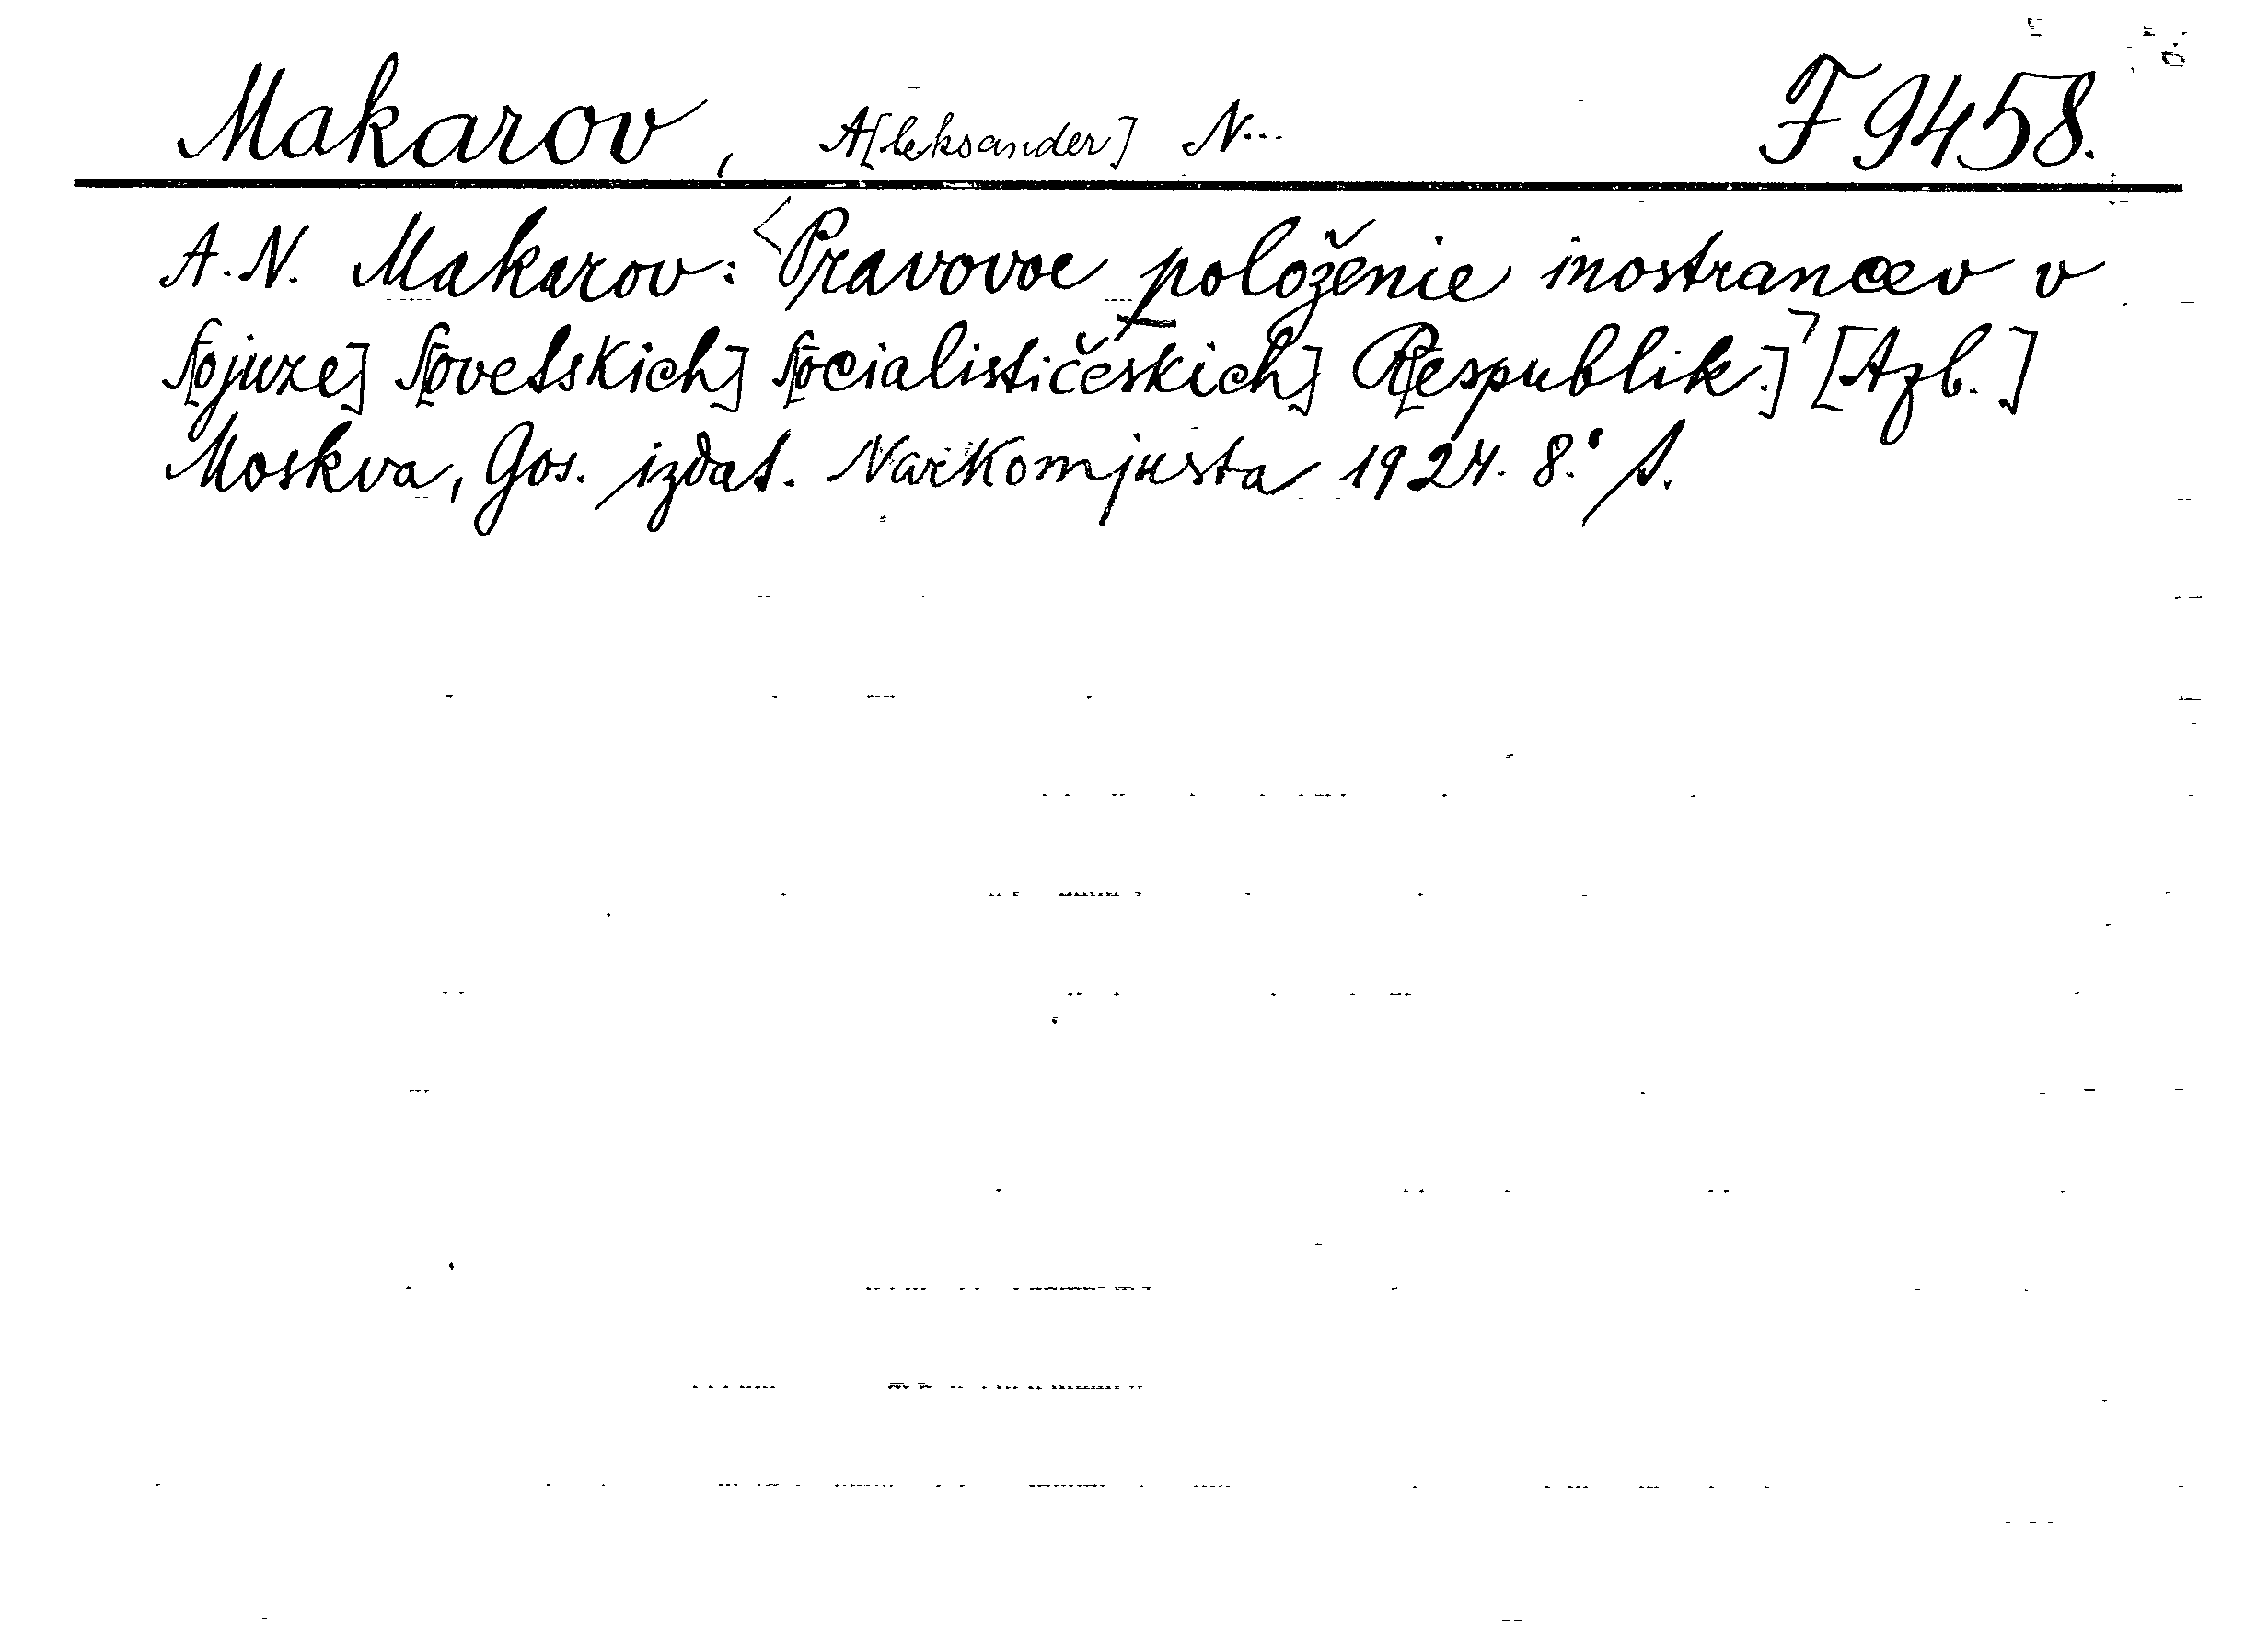 Makarov, A[leksander] N... F 9458.
A. N. Makarov: <Pravovoe položenie inostrancev v
S[ojuze] S[ovetskich] S[ocialističeskich] R[espublik.]> [Azb.]
Moskva, Gos. izdat. Narkomjusta 1924. 8.°